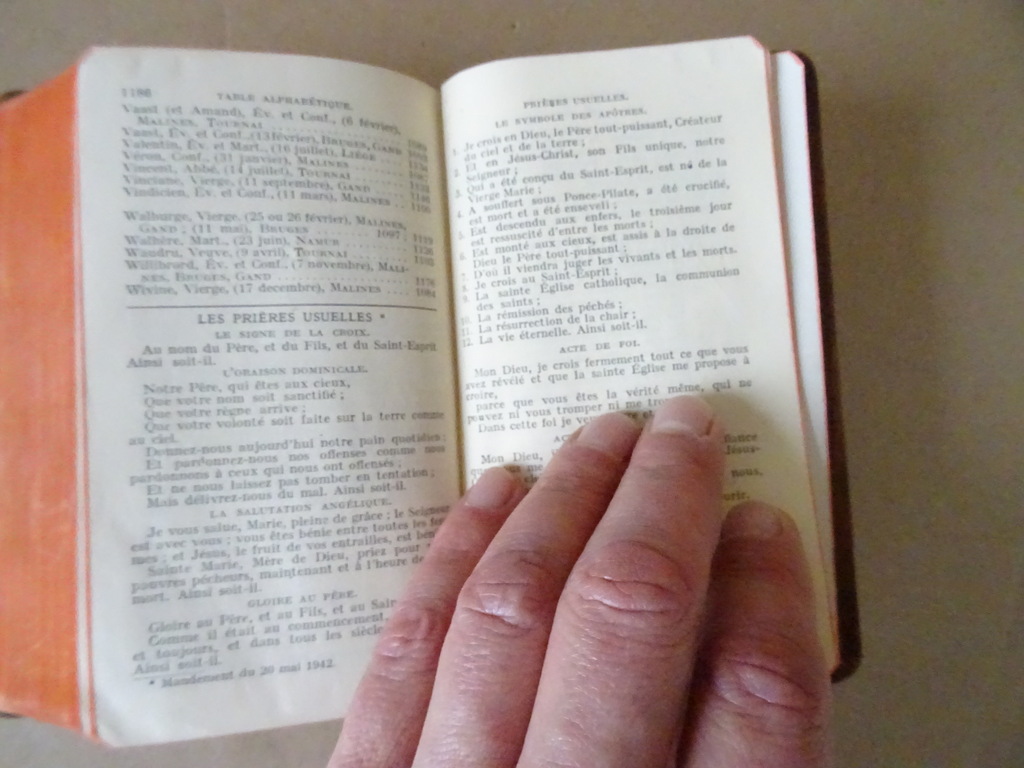 1186 TABLE ALPHABÉTIQUE.
Vaast (et Amand), Év. et Conf., (6 février),
MALINES, TOURNAI
Vaast, Év. et Conf., (13 février), BRUGES, GAND
Valentin, Év. et Mart., (16 juillet), LIÈGE
Véron, Conf., (31 janvier), MALINES
Vincent, Abbé, (14 juillet), TOURNAI
Vinciane, Vierge, (11 septembre), GAND
Vindicien, Év. et Conf., (11 mars), MALINES
Walburge, Vierge, (25 ou 26 février), MALINES,
GAND ; (11 mai), BRUGES 1097
Walhère, Mart., (23 juin), NAMUR
Waudru, Veuve, (9 avril), TOURNAI
Willibrord, Év. et Conf., (7 novembre), MALI-
NES, BRUGES, GAND
Wivine, Vierge, (17 decembre), MALINES
LES PRIÈRES USUELLES *
LE SIGNE DE LA CROIX.
Au nom du Père, et du Fils, et du Saint-Esprit
Ainsi soit-il.
L'ORAISON DOMINICALE.
Notre Père, qui êtes aux cieux,
Que votre nom soit sanctifié ;
Que votre règne arrive ;
Que votre volonté soit faite sur la terre comme
au ciel.
Donnez-nous aujourd'hui notre pain quotidien ;
Et pardonnez-nous nos offenses comme nous
pardonnons à ceux qui nous ont offensés ;
Et ne nous laissez pas tomber en tentation ;
Mais délivrez-nous du mal. Ainsi soit-il.
LA SALUTATION ANGÉLIQUE.
Je vous salue, Marie, pleine de grâce ; le Seigneur
est avec vous ; vous êtes bénie entre toutes les fem
mes ; et Jésus, le fruit de vos entrailles, est bén
Sainte Marie, Mère de Dieu, priez pour
pauvres pécheurs, maintenant et à l'heure de
mort. Ainsi soit-il.
GLOIRE AU PÈRE.
Gloire au Père, et au Fils, et au Sain
Comme il était au commencement,
et toujours, et dans tous les siècle
Ainsi soit-il.
* Mandement du 20 mai 1942.
PRIÈRES USUELLES.
LE SYMBOLE DES APÔTRES.
1. Je crois en Dieu, le Père tout-puissant, Créateur
du ciel et de la terre ;
2. Et en Jésus-Christ, son Fils unique, notre
Seigneur ;
3. Qui a été conçu du Saint-Esprit, est né de la
Vierge Marie ;
4. A souffert sous Ponce-Pilate, a été crucifié,
est mort et a été enseveli ;
5. Est descendu aux enfers, le troisième jour
est ressuscité d'entre les morts ;
6. Est monté aux cieux, est assis à la droite de
Dieu le Père tout-puissant ;
7. D'où il viendra juger les vivants et les morts.
8. Je crois au Saint-Esprit ;
9. La sainte Église catholique, la communion
des saints ;
10. La rémission des péchés ;
11. La résurrection de la chair ;
12. La vie éternelle. Ainsi soit-il.
ACTE DE FOI.
Mon Dieu, je crois fermement tout ce que vous
avez révélé et que la sainte Église me propose à
croire,
parce que vous êtes la vérité même, qui ne
pouvez ni vous tromper ni me tro
Dans cette foi je v
Mon Dieu,
Jésus-
nous.